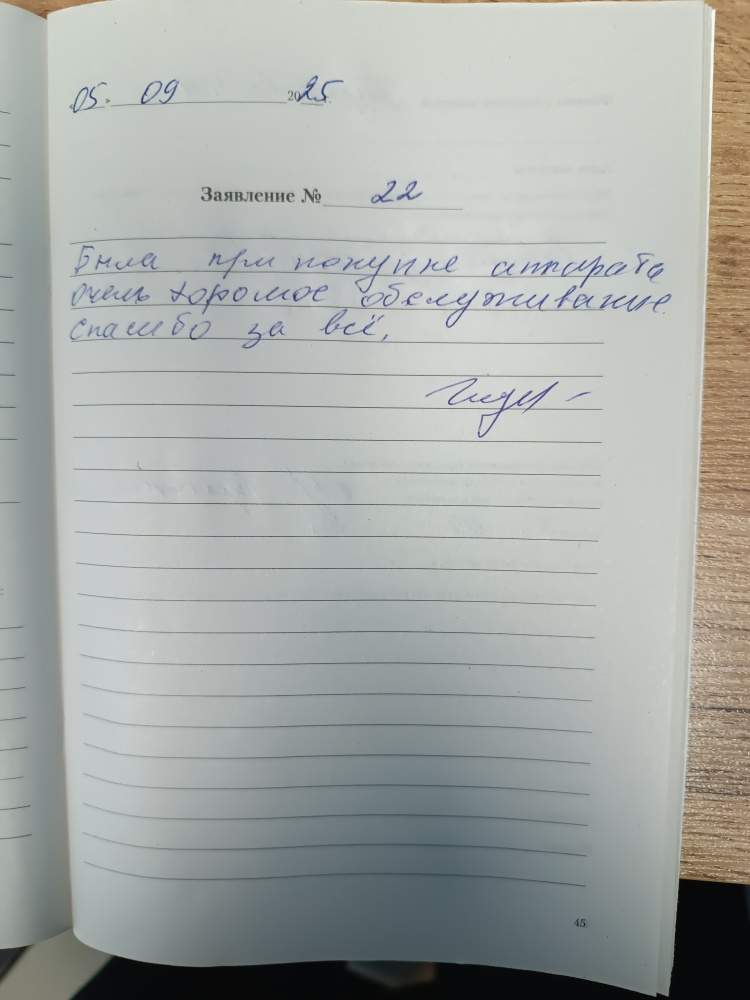 05. 09 2025
Заявление № 22
Была при покупке аппарата
очень хорошое обслуживание
спасибо за всё.
45